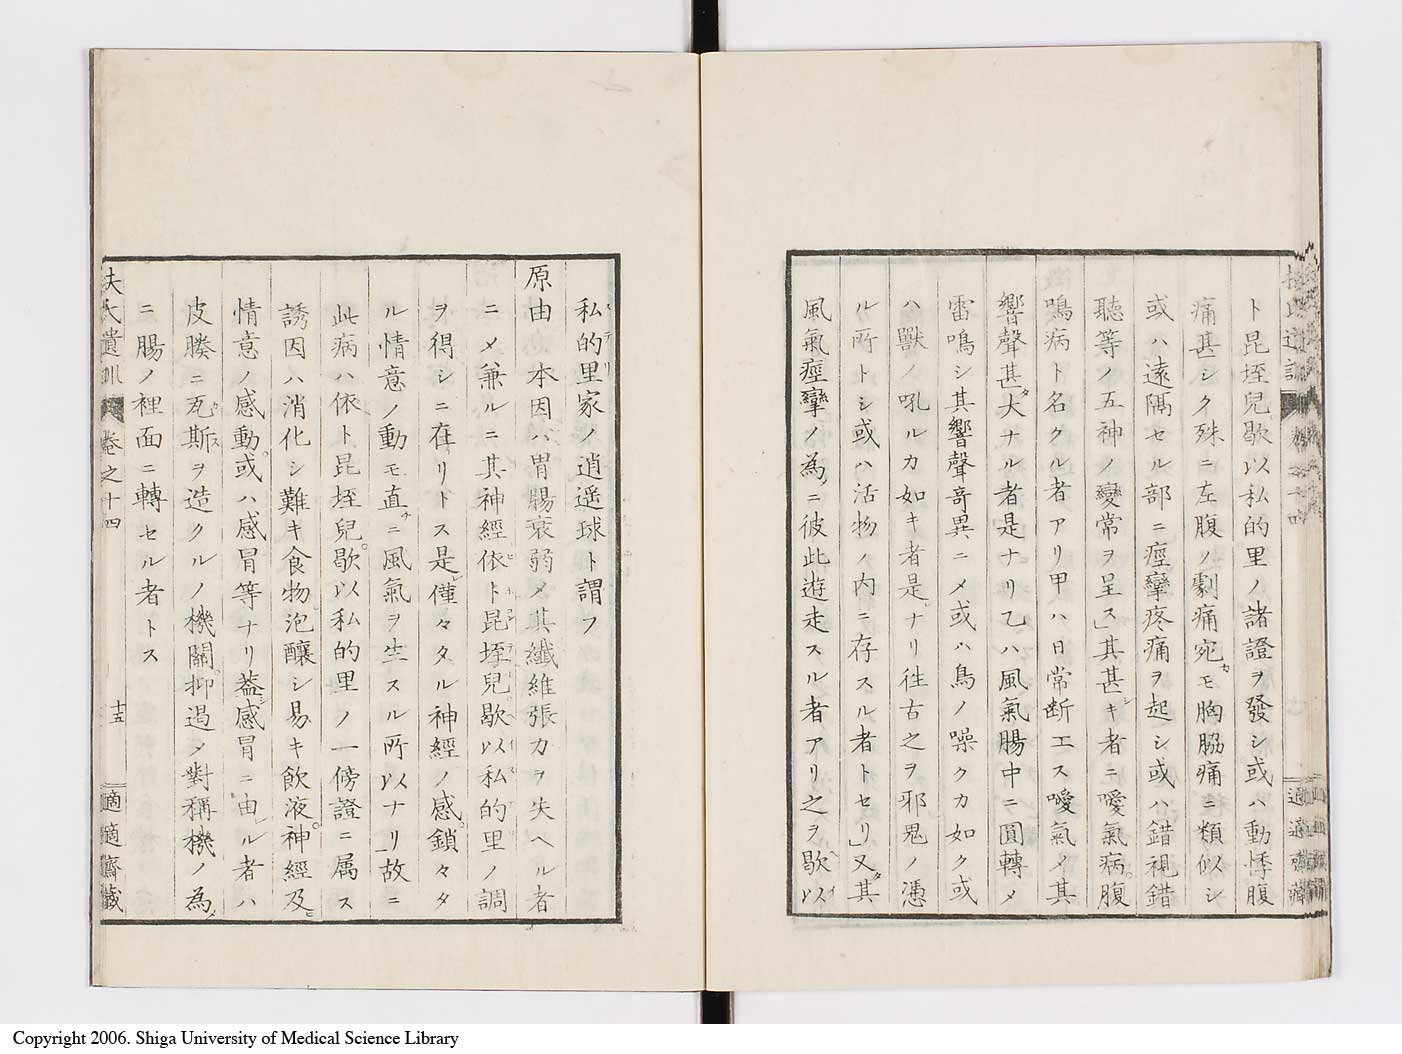 ト昆垤兒歇以私的里ノ諸證ヲ發シ或ハ動悸腹
痛甚シク殊ニ左腹ノ劇痛宛モ胸脇痛ニ類似シ
或ハ遠隔セル部ニ痙攣疼痛ヲ起シ或ハ錯視錯
聽等ノ五神ノ變常ヲ呈ス」其甚キ者ニ噯氣病腹
鳴病ト名クル者アリ甲ハ日常断エス噯氣メ其
響聲甚大ナル者是ナリ乙ハ風氣腸中ニ圓轉メ
雷鳴シ其響聲竒異ニメ或ハ鳥ノ噪クカ如ク或
ハ獸ノ吼ルカ如キ者是ナリ徃古之ヲ邪鬼ノ憑
ル所トシ或ハ活物ノ内ニ存スル者トセリ」又其
風氣痙攣ノ為ニ彼此遊走スル者アリ之ヲ歇以
私的里家ノ逍遥球ト謂フ
原由 本因ハ胃腸衰弱メ其纖維張力ヲ失ヘル者
ニメ兼ルニ其神經依ト昆垤兒歇以私的里ノ調
ヲ得シニ在リトス是僅々タル神經ノ感鎖々タ
ル情意ノ動モ直ニ風氣ヲ生スル所以ナリ」故ニ
此病ハ依ト昆垤兒歇以私的里ノ一傍證ニ属ス
誘因ハ消化シ難キ食物泡釀シ易キ飲液神經及
情意ノ感動或ハ感冒等ナリ葢感冒ニ由ル者ハ
皮腠ニ瓦斯ヲ造クルノ機關抑遏ヲ對稱機ノ為
ニ腸ノ裡面ニ轉セル者トス
扶氏遺訓 卷之十四 十五 適適齋藏